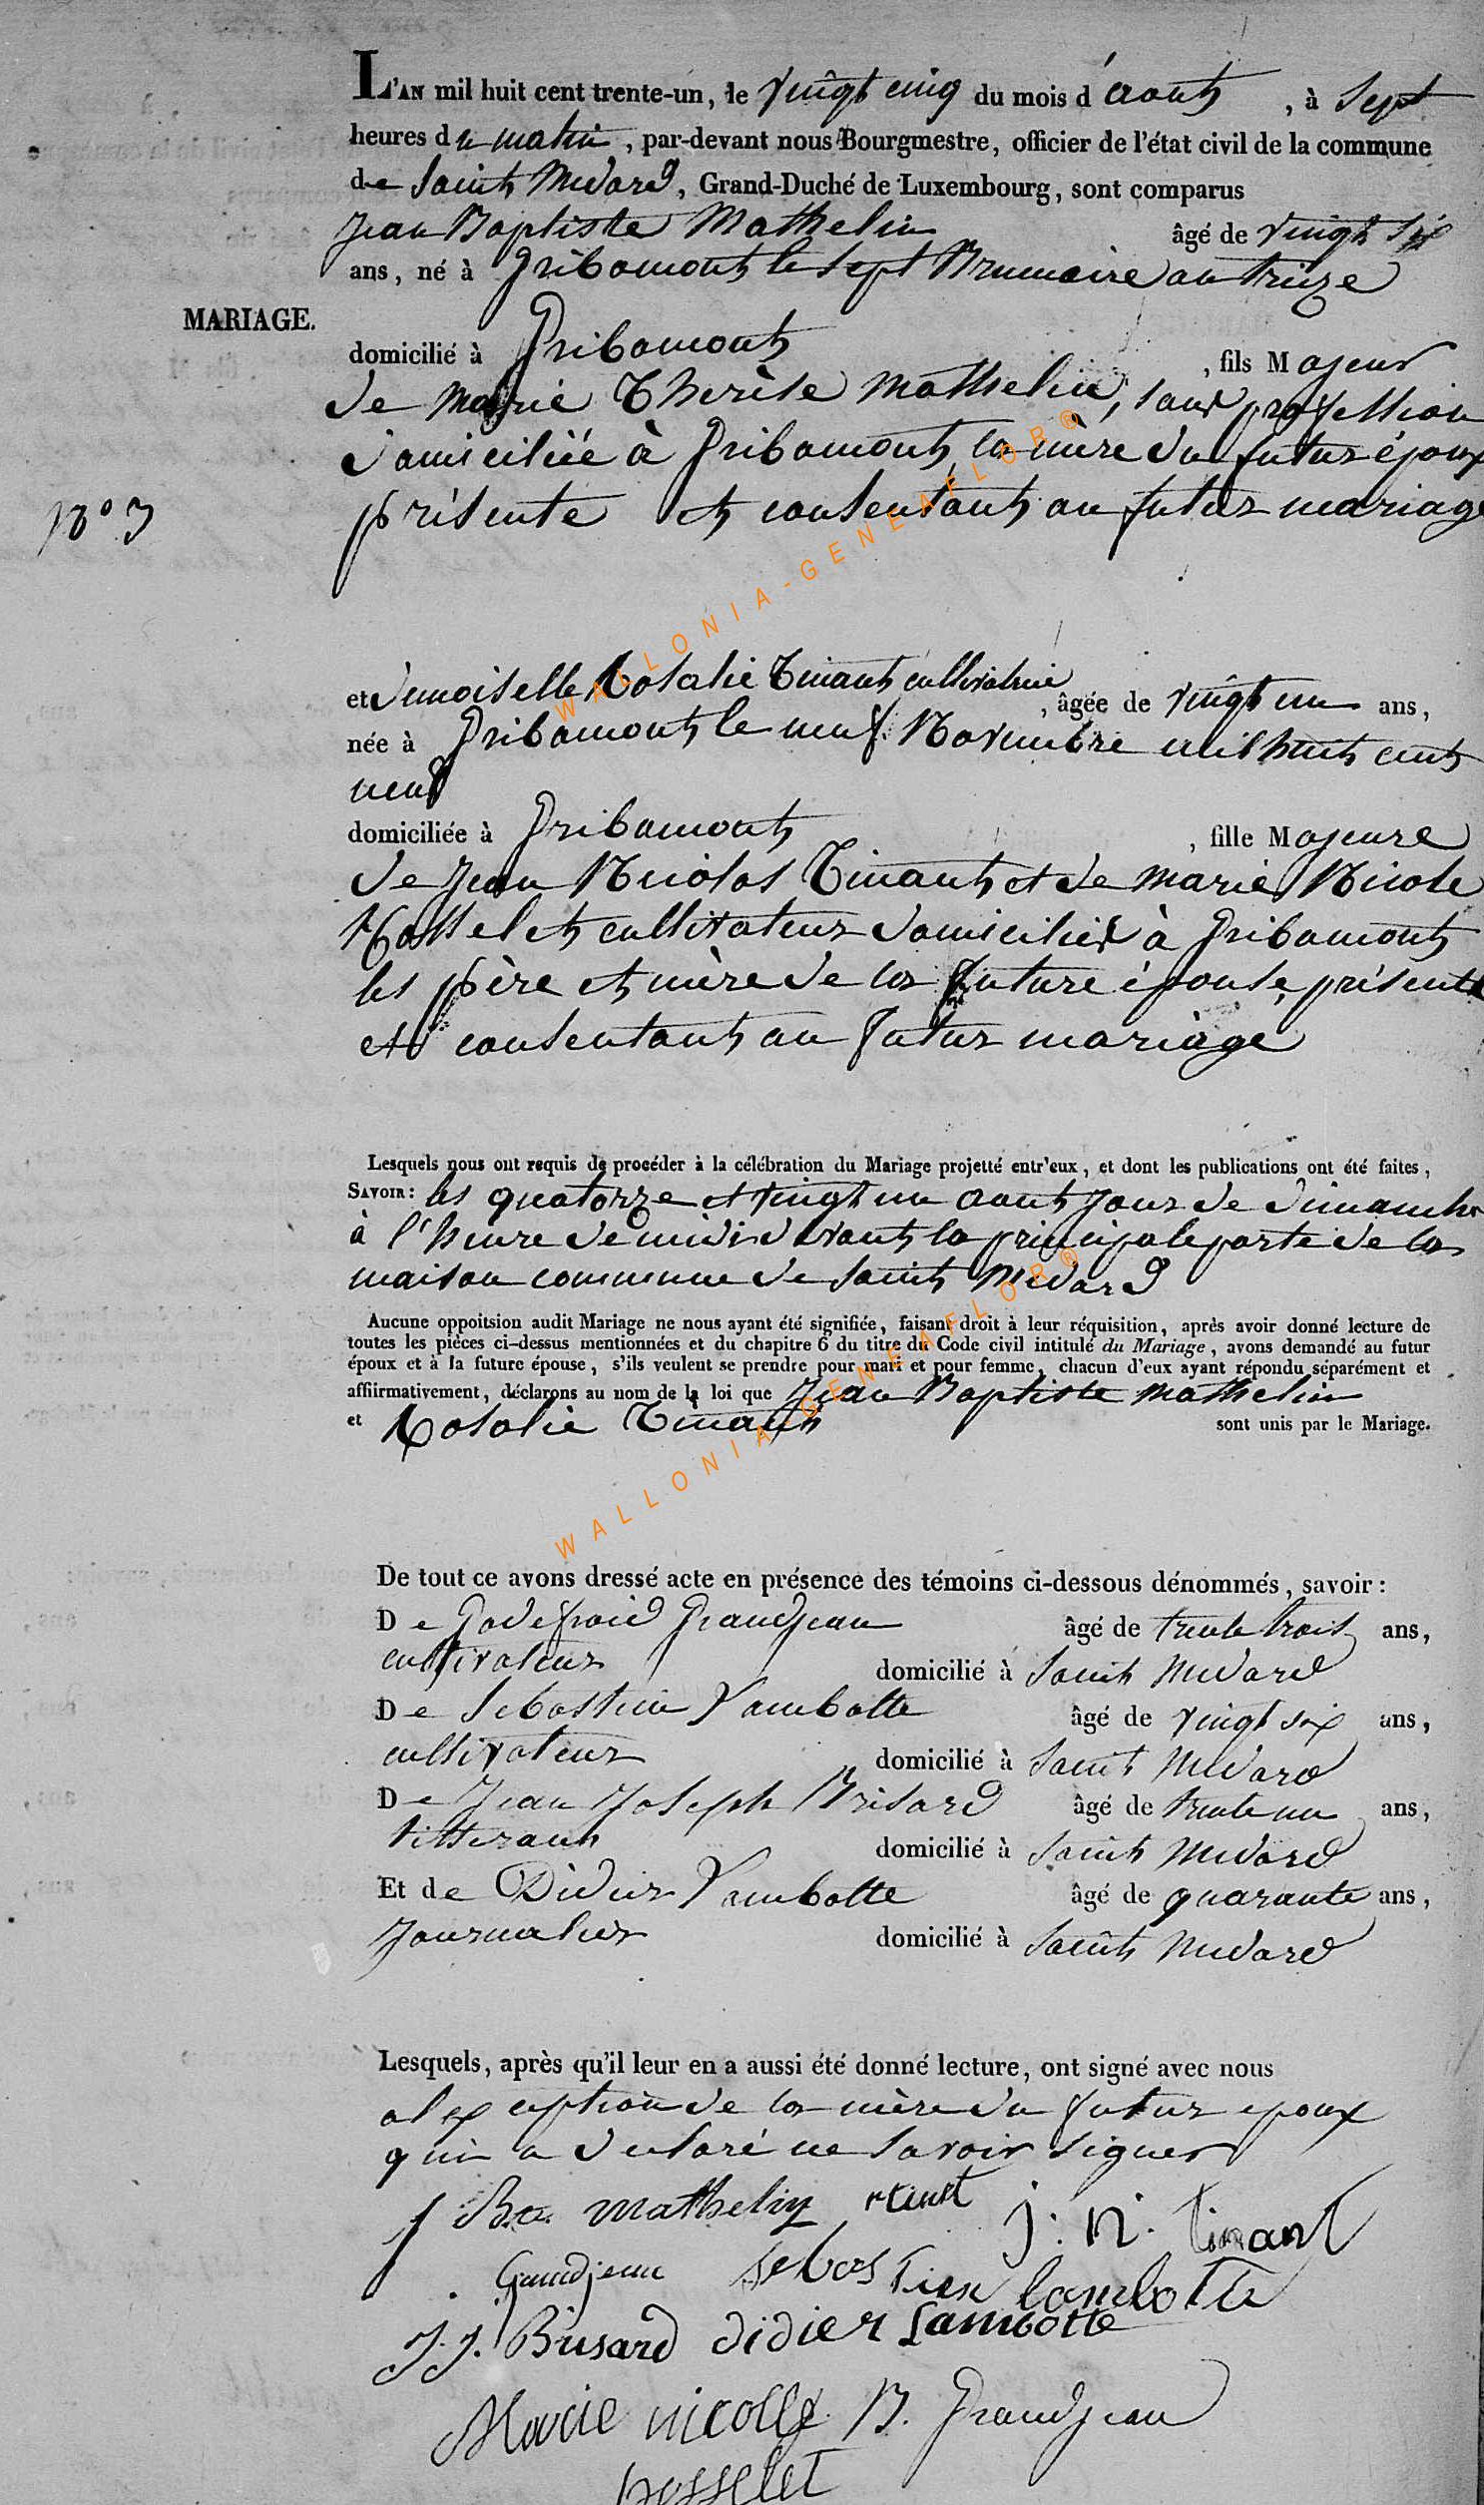 L'AN mil huit cent trente-un, le vingt cinq du mois d'aout, à sept
heures du matin, par-devant nous Bourgmestre, officier de l'état civil de la commune
de Saint Medard, Grand-Duché de Luxembourg, sont comparus
Jean Baptiste Mathelin âgé de vingt six
ans, né à Gribomont le sept Brumaire an treize
MARIAGE.
domicilié à Gribomont, fils Majeur
de Marie Therèse Mathelin, sans profession
domiciliée à Gribomont, la mère du futur époux
N° 3
présente et consentant au futur mariage
et demoiselle Rosalie Tinant cultivatrice, âgée de vingt un ans,
née à Gribomont le neuf Novembre mil huit cent
neuf
domiciliée à Gribomont, fille Majeure
de Jean Nicolas Tinant et de Marie Nicole
Rosselet cultivateurs domiciliés à Gribomont
les père et mère de la future épouse, présents
et consentant au futur mariage
Lesquels nous ont requis de procéder à la célébration du Mariage projetté entr'eux, et dont les publications ont été faites,
SAVOIR: les quatorze et vingt un aout jour de dimanche
à l'heure de midi devant la principale porte de la
maison commune de Saint Medard
Aucune oppoitsion audit Mariage ne nous ayant été signifiée, faisant droit à leur réquisition, après avoir donné lecture de
toutes les pièces ci-dessus mentionnées et du chapitre 6 du titre du Code civil intitulé du Mariage, avons demandé au futur
époux et à la future épouse, s'ils veulent se prendre pour mari et pour femme, chacun d'eux ayant répondu séparément et
affiirmativement, déclarons au nom de la loi que Jean Baptiste Mathelin
et Rosalie Tinant sont unis par le Mariage.
De tout ce avons dressé acte en présence des témoins ci-dessous dénommés, savoir:
De Godefroid Grandjean âgé de trente trois ans,
cultivateur domicilié à Saint Medard
De Sebastien Lambotte âgé de vingt six ans,
cultivateur domicilié à Saint Medard
De Jean Joseph Brisard âgé de trente un ans,
tisserant domicilié à Saint Medard
Et de Didier Lambotte âgé de quarante ans,
Journalier domicilié à Saint Medard
Lesquels, après qu'il leur en a aussi été donné lecture, ont signé avec nous
al exception de la mère du futur epoux
qui a declaré ne savoir signer
J Bte Mathelin r tinant J: N: tinant
Grandjean sebastien lambotte
J.J. Brisard didier Lambotte
Marie nicolle B. Grandjean
rosselet
WALLONIA-GENEAFLOR®
WALLONIA-GENEAFLOR®